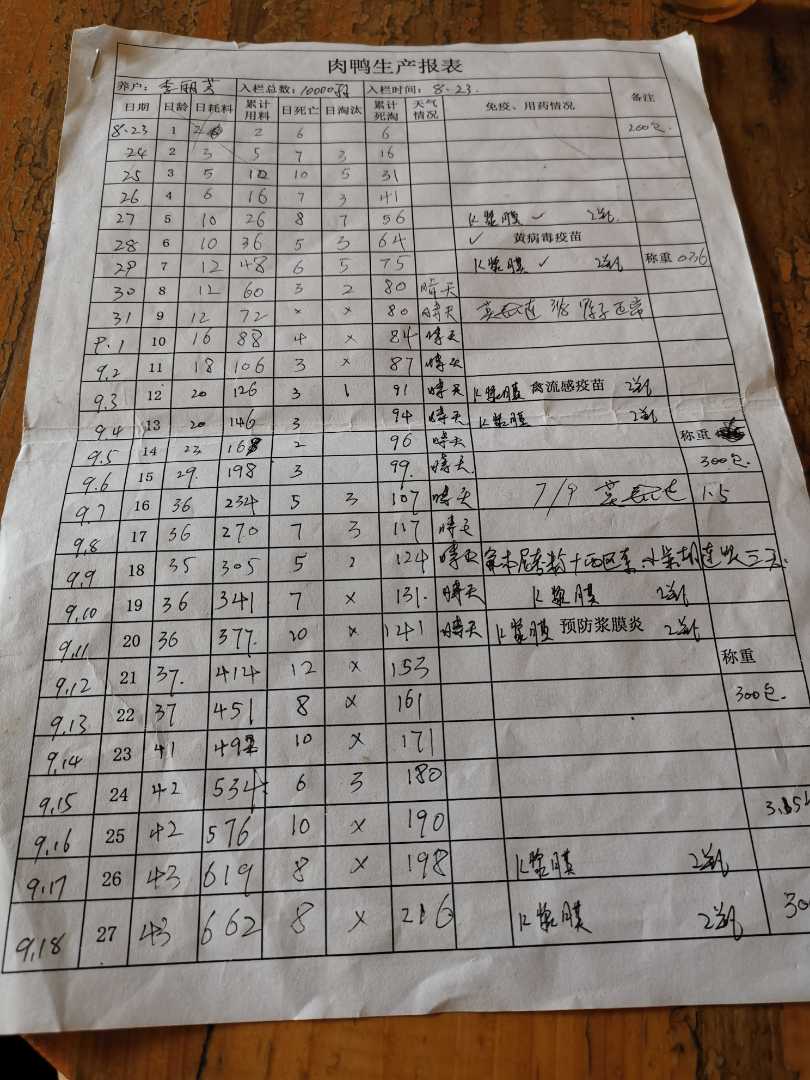 肉鸭生产报表
养户: 李丽芳 入栏总数: 10000羽 入栏时间: 8.23.
日期 日龄 日耗料 累计用料 日死亡 日淘汰 累计死淘 天气情况 免疫、用药情况 备注
8.23 1 2 2 6 6 200包.
24 2 3 5 7 3 16
25 3 5 10 10 5 31
26 4 6 16 7 3 41
27 5 10 26 8 7 56 K浆膜 ✓ 2瓶.
28 6 10 36 5 3 64 ✓ 黄病毒疫苗
29 7 12 48 6 5 75 K浆膜 ✓ 2瓶 称重 036
30 8 12 60 3 2 80 晴天
31 9 12 72 × × 80 晴天 31/8 正常
9.1 10 16 88 4 × 84 晴天
9.2 11 18 106 3 × 87 晴天
9.3 12 20 126 3 1 91 晴天 K浆膜 禽流感疫苗 2瓶
9.4 13 20 146 3 94 晴天 K浆膜 2瓶
9.5 14 23 168 2 96 晴天 称重
9.6 15 29. 198 3 99. 晴天 300包.
9.7 16 36 234 5 3 107 晴天 7/9 1.5
9.8 17 36 270 7 3 117 晴天
9.9 18 35 305 5 2 124 晴天 三天.
9.10 19 36 341 7 × 131. 晴天 K浆膜 2瓶
9.11 20 36 377. 20 × 141 晴天 K浆膜 预防浆膜炎 2瓶
9.12 21 37. 414 12 × 153 称重
9.13 22 37 451 8 × 161 300包.
9.14 23 41 492 10 × 171
9.15 24 42 534 6 3 180
9.16 25 42 576 10 × 190
9.17 26 43 619 8 × 198 K浆膜 2瓶
9.18 27 43 662 8 × 216 K浆膜 2瓶 30